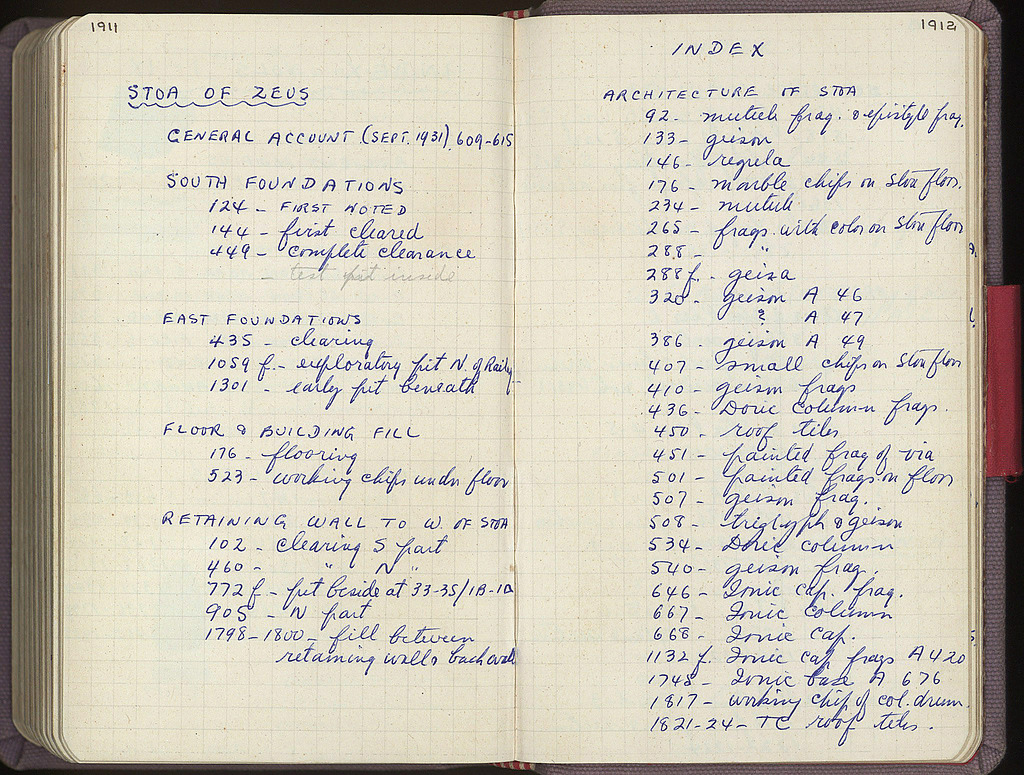 1911
STOA OF ZEUS
GENERAL ACCOUNT (SEPT. 1931) 609-615
SOUTH FOUNDATIONS
124 - FIRST NOTED
144 - first cleared
449 - complete clearance
- test pit inside
EAST FOUNDATIONS
435 - clearing
1059 f. - exploratory pit N. of Raily
1301 - early pit beneath
FLOOR & BUILDING FILL
176 - flooring
523 - working chips under floor
RETAINING WALL TO W. OF STOA
102 - clearing S part
460 - " N "
772 f - pit beside at 33-35/1B-1D
905 - N part
1798-1800 - fill between
retaining walls back wall
1912
INDEX
ARCHITECTURE OF STOA
92 - mutule frag. & epistyle frag.
133 - geison
146 - regula
176 - marble chips on Stoa floor.
234 - mutule
265 - frags. with color on Stoa floor
288 - "
288 f. - geisa
320 - geison A 46
& A 47
386 - geison A 49
407 - small chips on Stoa floor
410 - geison frags
436 - Doric column frags.
450 - roof tiles
451 - painted frag of via
501 - painted frags on floor
507 - geison frag.
508 - triglyph & geison
534 - Doric column
540 - geison frag.
646 - Ionic cap. frag.
667 - Ionic column
668 - Ionic cap.
1132 f. Ionic cap frags A 420
1748 - Ionic base A 676
1817 - working chip of col. drum.
1821-24 - TC roof tiles.